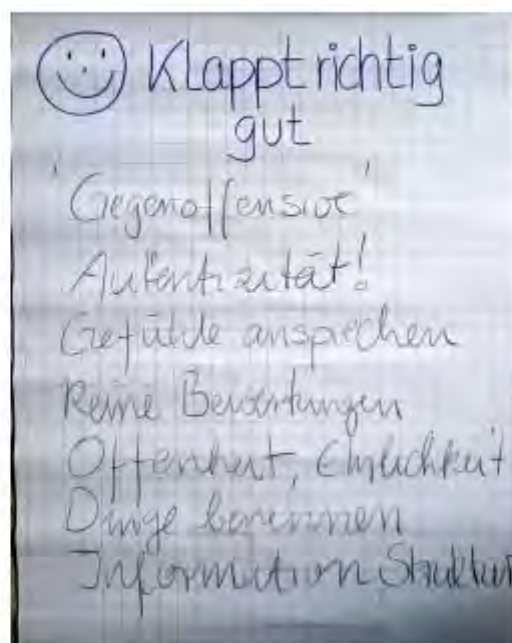 Klappt richtig
gut
'Gegenoffensive'
Autentizität!
Gefühle ansprechen
Keine Bewertungen
Offenheit, Ehrlichkeit
Dinge benennen
Information, Struktur